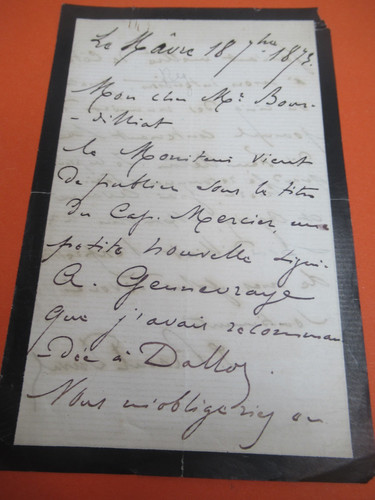 Le Hâvre 18 7bre 1873.
Mon cher Mr. Bour-
-dilliat
le Moniteur vient
de publier sous le titre
du Cap. Mercier, une
petite nouvelle signée
A. Gennevraye
que j'avais recomman
-dée à Dalloz.
Vous m'obligeriez en